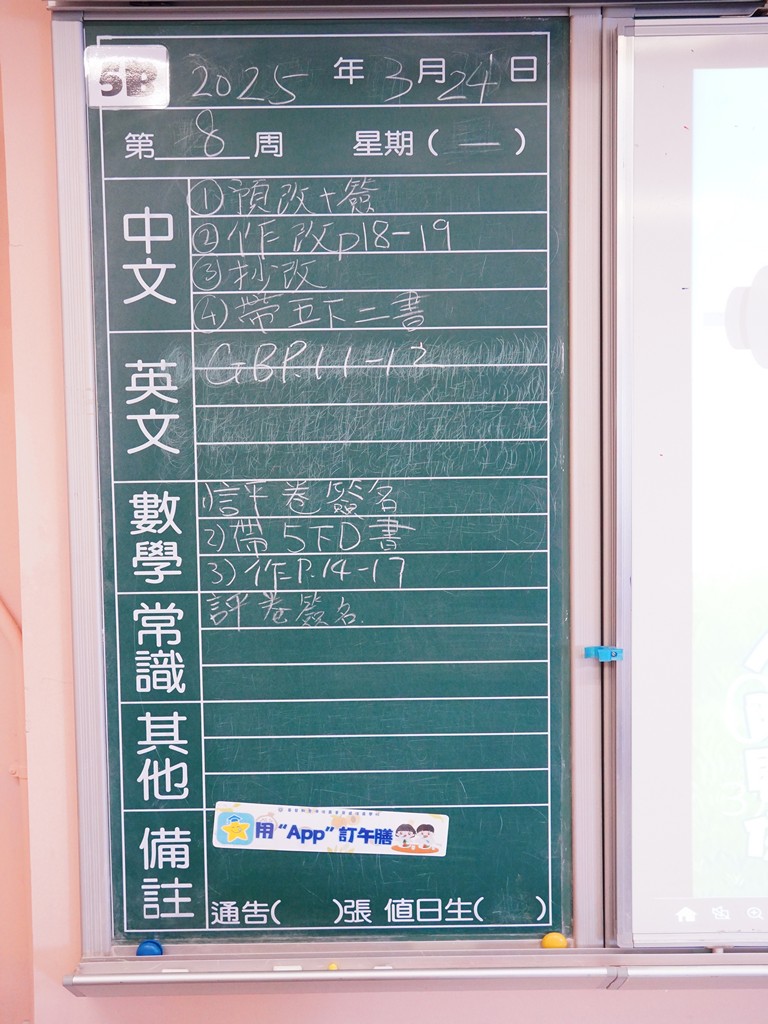 5B 2025 年 3 月 24 日
第 8 周 星期 ( 一 )
中文
① 預改+簽
② 作改p18-19
③ 抄改
④ 帶五下二書
英文
GBP.11-12
數學
1) 評卷簽名
2) 帶5下D書
3) 作P.14-17
常識
評卷簽名
其他
備註
用“App”訂午膳
通告( )張 值日生( )